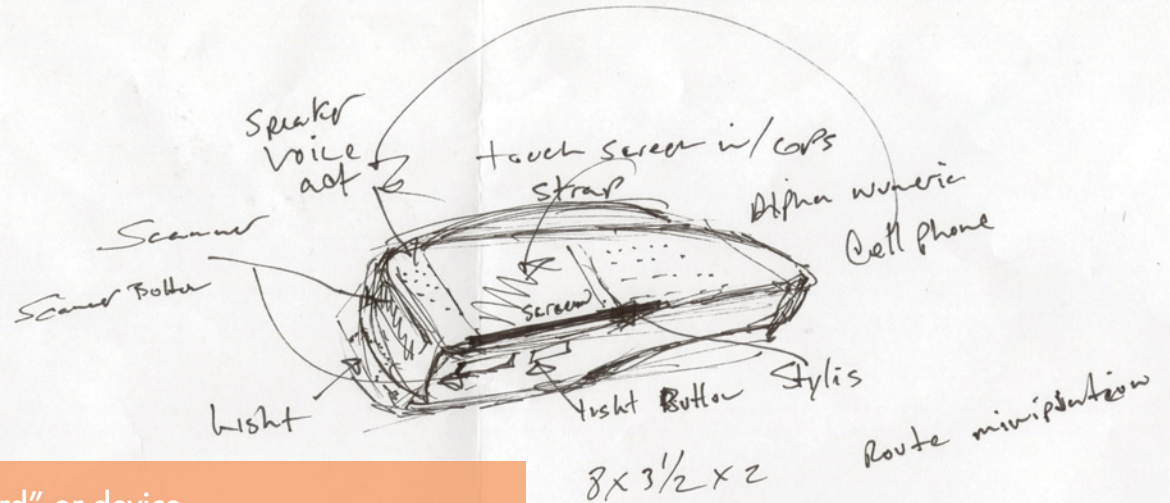 Speaker
Voice
act
touch screen w/ caps
strap
Alpha numeric
Cell phone
Scanner
Scanner Button
screen
Light
Light Button
Stylis
Route minipulation
8 x 3 1/2 x 2
rd" or device